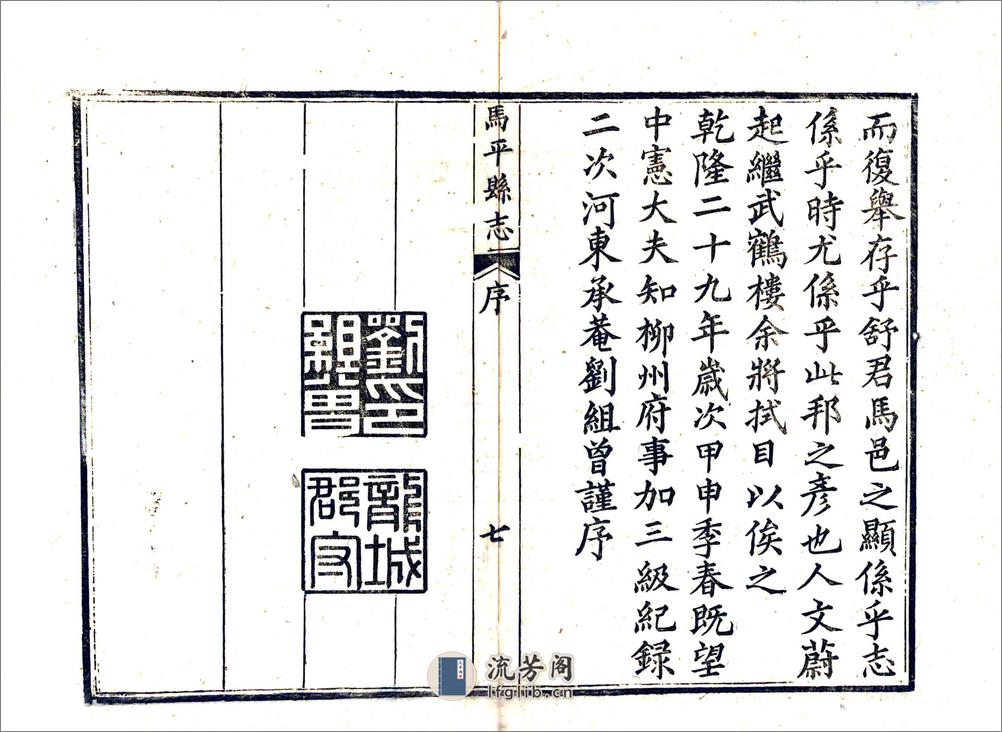 而復舉存乎舒君馬邑之顯係乎志
係乎時尤係乎此邦之彥也人文蔚
起繼武鶴樓余將拭目以俟之
乾隆二十九年歲次甲申季春既望
中憲大夫知柳州府事加三級紀錄
二次河東承菴劉組曾謹序
馬平縣志
序
七
劉印組曾
龍城郡守
流芳阁
lfglib.cn